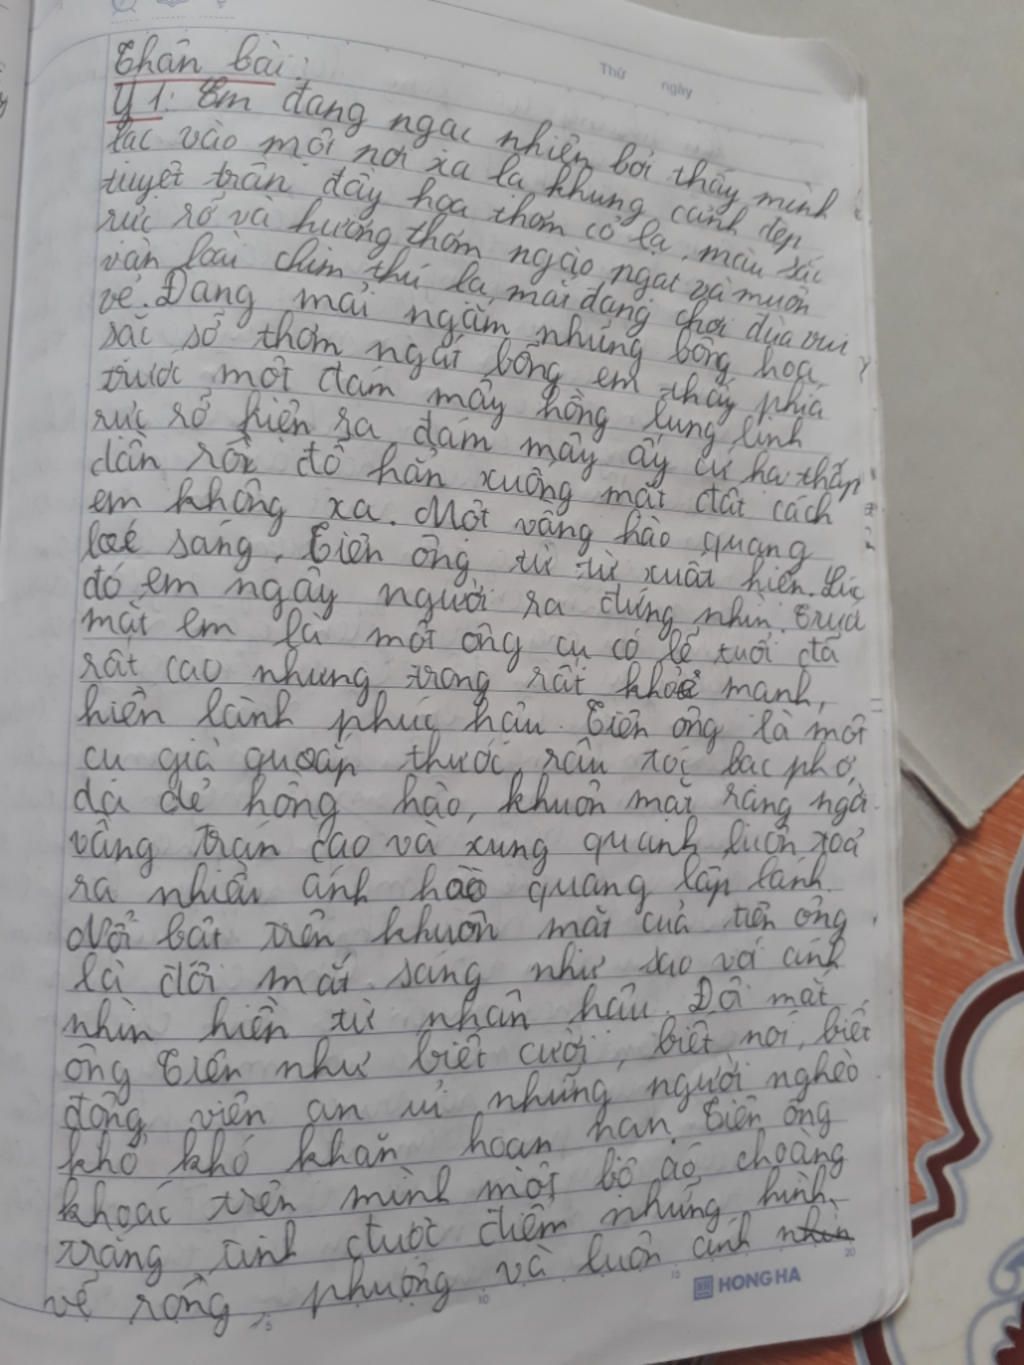 Thứ ngày
Thân bài:
Ý 1: Em đang ngạc nhiên bởi thấy mình
lạc vào một nơi xa lạ khung cảnh đẹp
tuyệt trần đầy hoa thơm cỏ lạ, màu sắc
rực rỡ và hương thơm ngào ngạt và muôn
vàn loài chim thú lạ, mải đang chơi đùa vui
vẻ. Đang mải ngắm những bông hoa
sắc sở thơm ngát bỗng em thấy phía
trước một đám mây hồng lung linh
rực rỡ hiện ra, đám mây ấy cứ hạ thấp
dần rồi đỗ hẳn xuống mặt đất cách
em không xa. Một vầng hào quang
loé sáng, Tiên ông từ từ xuất hiện. Lúc
đó em ngây người ra đứng nhìn. Trước
mặt em là một ông cụ có lẽ tuổi đã
rất cao nhưng trong rất khoẻ mạnh,
hiền lành phúc hậu. Tiên ông là một
cụ già quoắp thước, râu tóc bạc phơ,
da dẻ hồng hào, khuôn mặt rạng ngời
vầng trán cao và xung quanh luôn toả
ra nhiều ánh hào quang lấp lánh.
Nổi bật trên khuôn mặt của tiên ông
là đôi mắt sáng như sao với ánh
nhìn hiền từ nhân hậu. Đôi mắt
ông Tiên như biết cười, biết nói, biết
động viên an ủi những người nghèo
khổ khó khăn hoạn hạn. Tiên ông
khoác trên mình một bộ áo choàng
trắng tinh được điểm những hình
vẽ rồng, phượng và luôn ánh
HONG HA
5 10 15 20